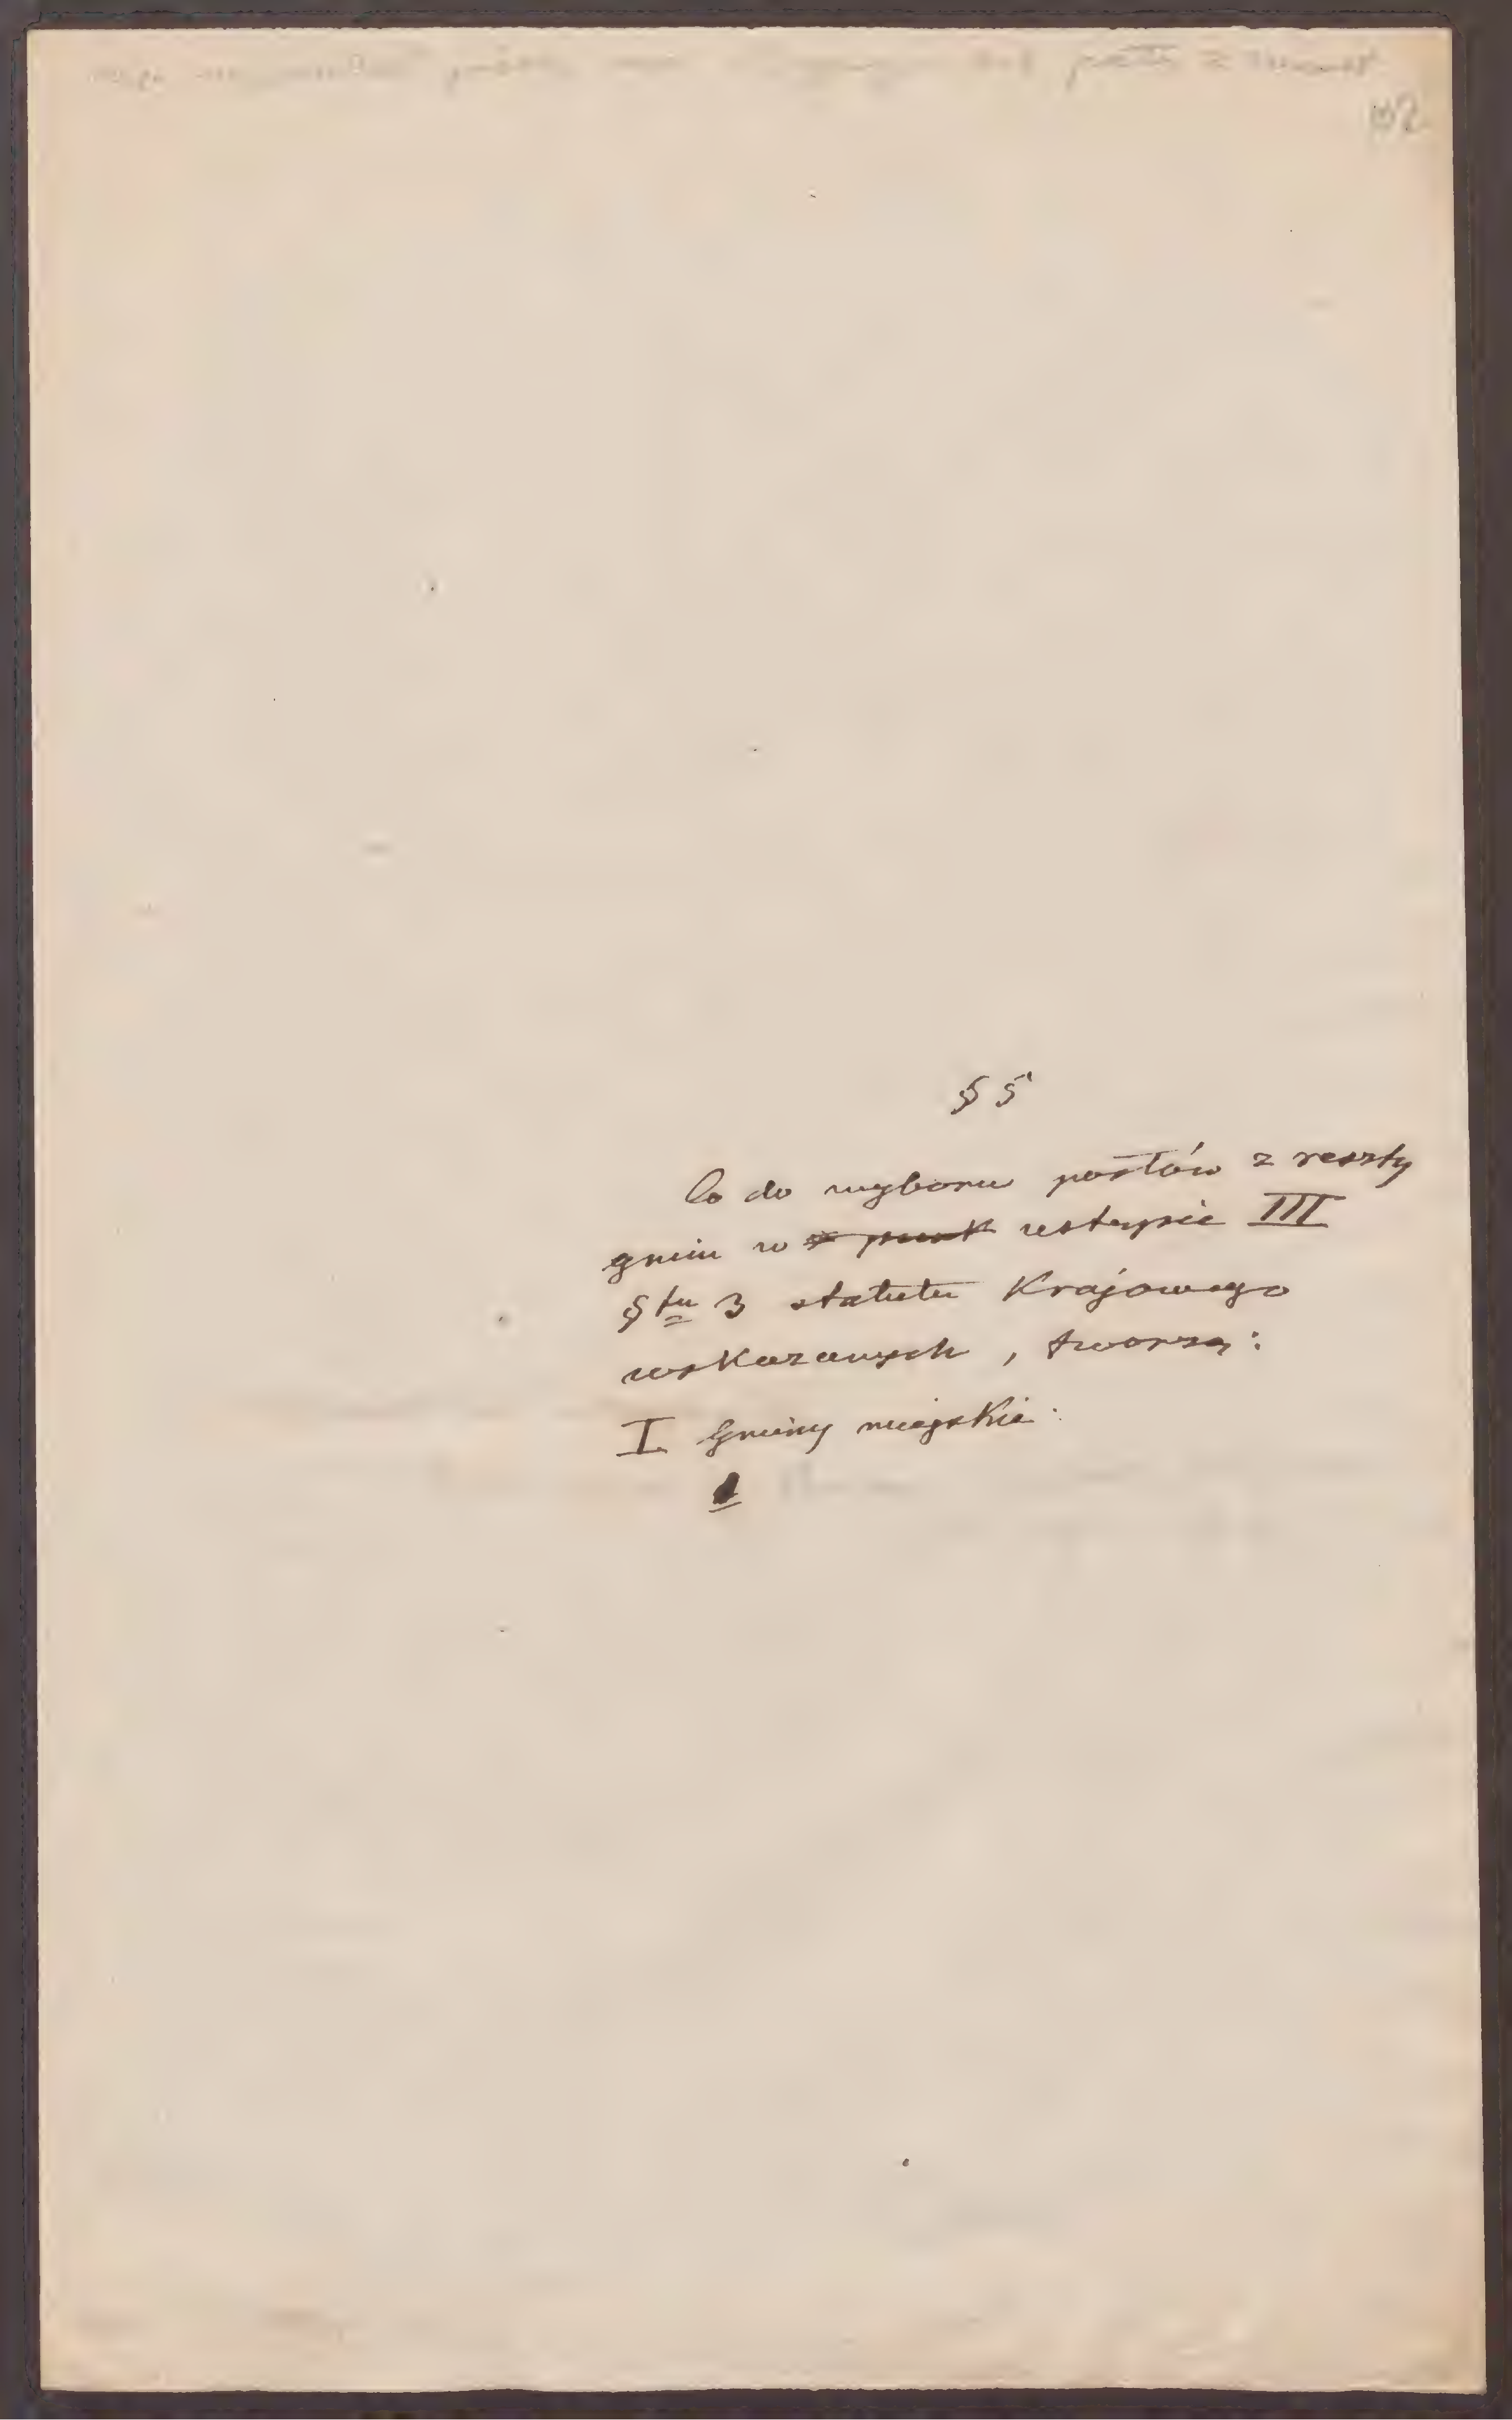 102
§ 5
Co do wyboru posłów z reszty
gmin w punk ustępie III
§fu 3 statutu Krajowego
wskazanych, tworzą:
I Gminy miejskie: